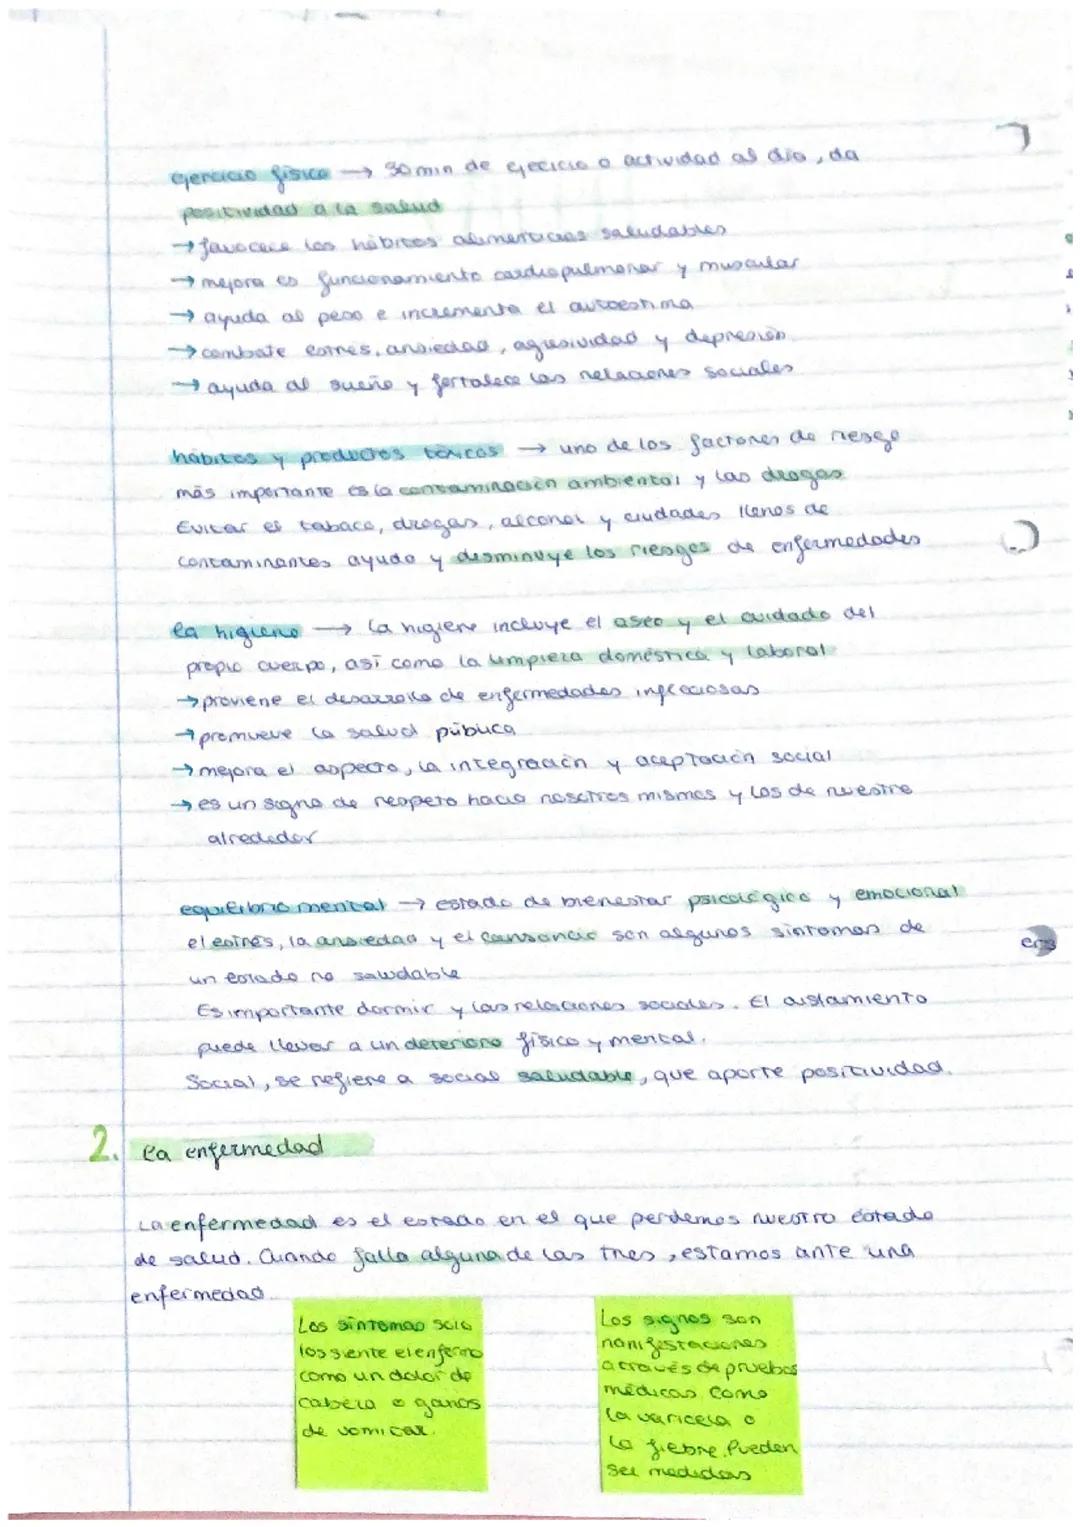 ejercicio físico → 30 min de ejecicio o actividad al día, da
positividad a la salud
→ favocece los hábitos alimenticios saludables
→ mejora es funcionamiento cardiopulmonar y muscular
→ ayuda al peso e incrementa el autoestima
→ combate estrés, ansiedad, agresividad y depresión
→ ayuda al sueño y fortalece las relaciones sociales
hábitos y productos tóxicos → uno de los factores de riesgo
más importante es la contaminación ambiental y las drogas
Evitar el tabaco, drogas, alcohol y ciudades llenas de
contaminantes ayuda y desminuye los riesgos de enfermedades
la higiene → la higiene incluye el aseo y el cuidado del
propio cuerpo, así como la limpieza doméstica y laboral
→ proviene el desarrollo de enfermedades infecciosas
→ promueve la salud pública
→ mejora el aspecto, la integración y aceptación social
→ es un signo de respeto hacia nosotros mismos y los de nuestro
alrededor
equilibrio mental → estado de bienestar psicológico y emocional
el estrés, la ansiedad y el cansancio son algunos síntomas de
un estado no saludable
Es importante dormir y las relaciones sociales. El aislamiento
puede llevar a un deterioro físico y mental.
Social, se refiere a social saludable, que aporte positividad.
2. La enfermedad
La enfermedad es el estado en el que perdemos nuestro estado
de salud. Cuando falla alguna de las tres, estamos ante una
enfermedad.
Los síntomas solo
los siente el enfermo
como un dolor de
cabeza o ganas
de vomitar.
Los signos son
manifestaciones
a través de pruebas
médicas como
la varicela o
la fiebre. Pueden
ser medidas